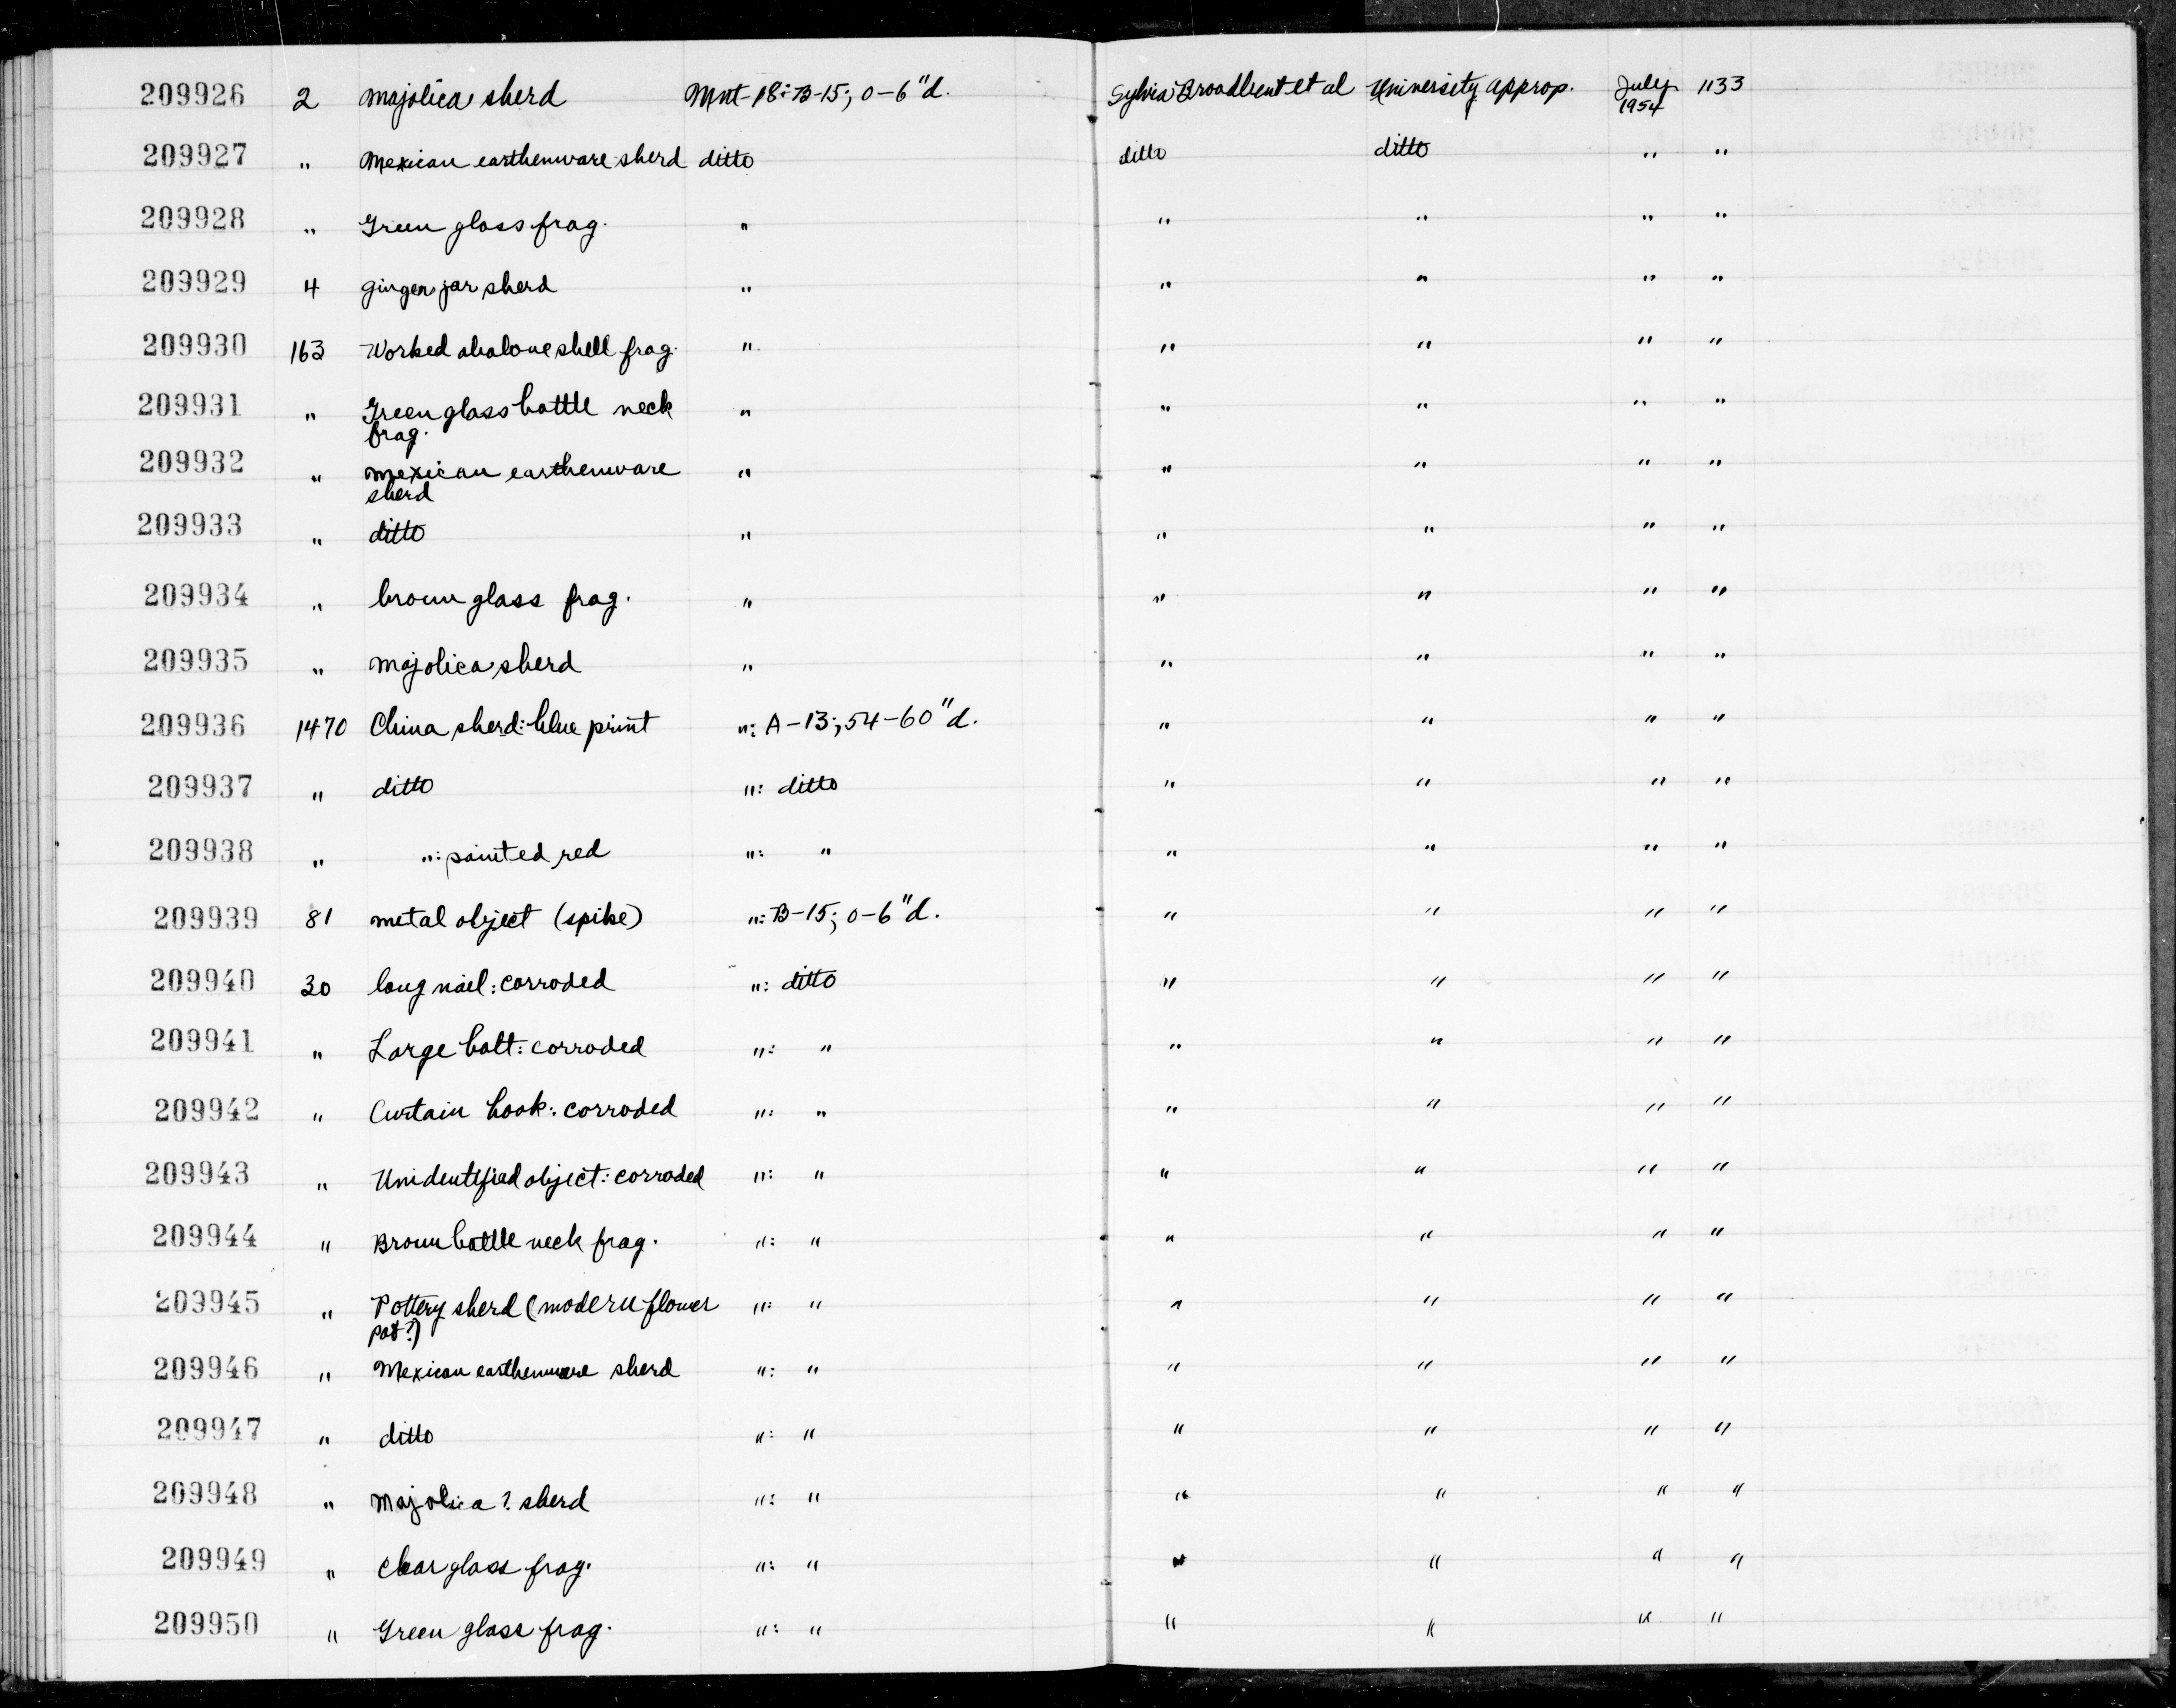 209926 2 Majolica sherd Mnt-18: B-15; 0-6"d. Sylvia Broadbent et al University Approp. July 1954 1133
209927 " Mexican earthenware sherd ditto ditto ditto " "
209928 " Green glass frag. " " " " "
209929 4 ginger jar sherd " " " " "
209930 163 Worked abalone shell frag. " " " " "
209931 " Green glass bottle neck " " " " "
frag.
209932 " Mexican earthenware " " " " "
sherd
209933 " ditto " " " " "
209934 " brown glass frag. " " " " "
209935 " Majolica sherd " " " " "
209936 1470 China sherd: blue print ": A-13; 54-60"d. " " " "
209937 " ditto ": ditto " " " "
209938 " ": painted red ": " " " " "
209939 81 metal object (spike) ": B-15; 0-6"d. " " " "
209940 30 long nail: corroded ": ditto " " " "
209941 " Large bolt: corroded ": " " " " "
209942 " Curtain hook: corroded ": " " " " "
209943 " Unidentified object: corroded ": " " " " "
209944 " Brown bottle neck frag. ": " " " " "
209945 " Pottery sherd (modern flower ": " " " " "
pot?)
209946 " Mexican earthenware sherd ": " " " " "
209947 " ditto ": " " " " "
209948 " Majolica? sherd ": " " " " "
209949 " Clear glass frag. ": " " " " "
209950 " Green glass frag. ": " " " " "